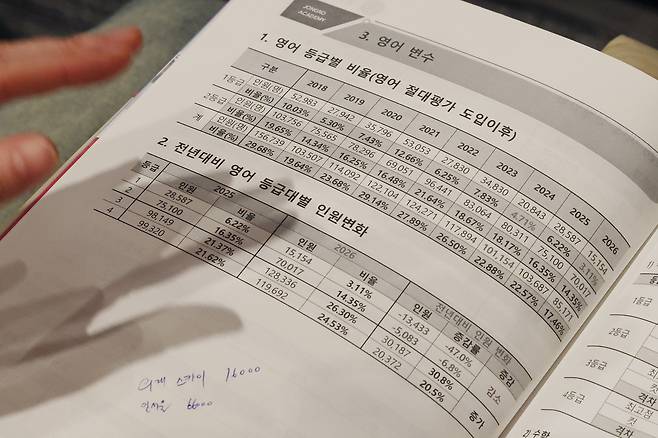 JONGRO
ACADEMY
3. 영어 변수
1. 영어 등급별 비율(영어 절대평가 도입이후)
구분 2018 2019 2020 2021 2022 2023 2024 2025 2026
1등급 인원(명) 52,983 27,942 35,796 53,053 27,830 34,830 20,843 28,587 15,154
비율(%) 10.03% 5.30% 7.43% 12.66% 6.25% 7.83% 4.71% 6.22% 3.11%
2등급 인원(명) 103,756 75,565 78,296 69,051 96,441 83,064 80,311 75,100 70,017
비율(%) 19.65% 14.34% 16.25% 16.48% 21.64% 18.67% 18.17% 16.35% 14.35%
계 인원(명) 156,739 103,507 114,092 122,104 124,271 117,894 101,154 103,687 85,171
비율(%) 29.68% 19.64% 23.68% 29.14% 27.89% 26.50% 22.88% 22.57% 17.46%
2. 전년대비 영어 등급대별 인원변화
등급 2025 2026 전년대비 인원 변화
인원 비율 인원 비율 인원 증감률 증감
1 28,587 6.22% 15,154 3.11% -13,433 -47.0% 감소
2 75,100 16.35% 70,017 14.35% -5,083 -6.8%
3 98,149 21.37% 128,336 26.30% 30,187 30.8% 증가
4 99,320 21.62% 119,692 24.53% 20,372 20.5%
스카이 16000
6600
1)
등급
1등급
2등급
3등급
최
컷
격차
4등급
최고점
컷
격차
2) 수학